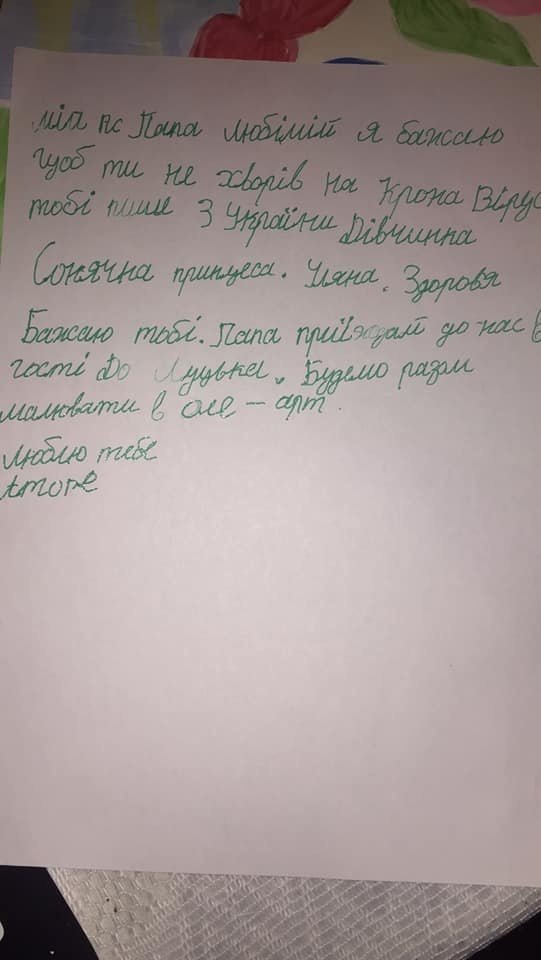 мій пс Папа любімій я бажаю
щоб ти не хворів на Крона Вірус
тобі пише З України Дівчинка
Сонячна принцеса. Уляна. Здоровя
Бажаю тобі. Папа приїзджай до нас в
гості До Луцька. Будемо разом
малювати в оле-арт.
люблю тебе
Аморе